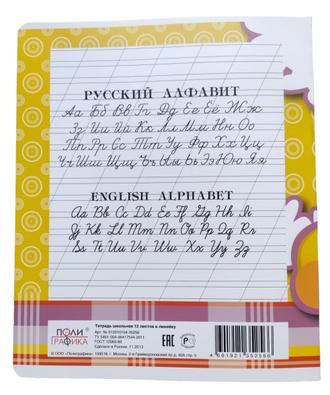 РУССКИЙ АЛФАВИТ
Аа Бб Вв Гг Дд Ее Её Жж
Зз Ии Йй Кк Лл Мм Нн Оо
Пп Рр Сс Тт Уу Фф Хх Цц
Чч Шш Щщ Ъъ Ыы Ьь Ээ Юю Яя
ENGLISH ALPHABET
Aa Bb Cc Dd Ee Ff Gg Hh Ii
Jj Kk Ll Mm Nn Oo Pp Qq Rr
Ss Tt Uu Vv Ww Xx Yy Zz
ПОЛИ
ГРАФИКА
Тетрадь школьная 12 листов в линейку
ГОСТ 12063-89
Сделано в России, 11.2013
EAC
4 601921 352566